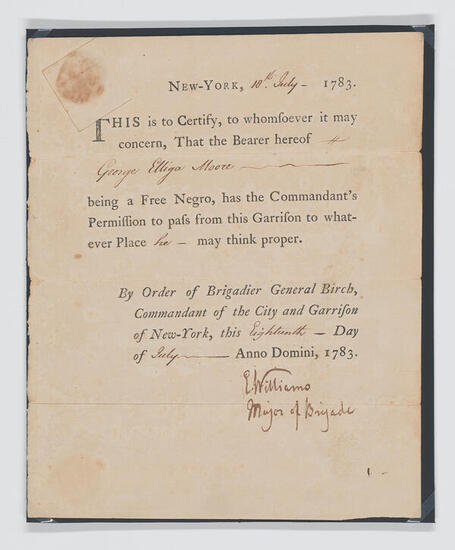 NEW-YORK, 18th July - 1783.
THIS is to Certify, to whomſoever it may
concern, That the Bearer hereof
George Elliga Moore
being a Free Negro, has the Commandant's
Permiſſion to paſs from this Garriſon to what-
ever Place he - may think proper.
By Order of Brigadier General Birch,
Commandant of the City and Garriſon
of New-York, this Eighteenth - Day
of July - Anno Domini, 1783.
E Williams
Major of Brigade